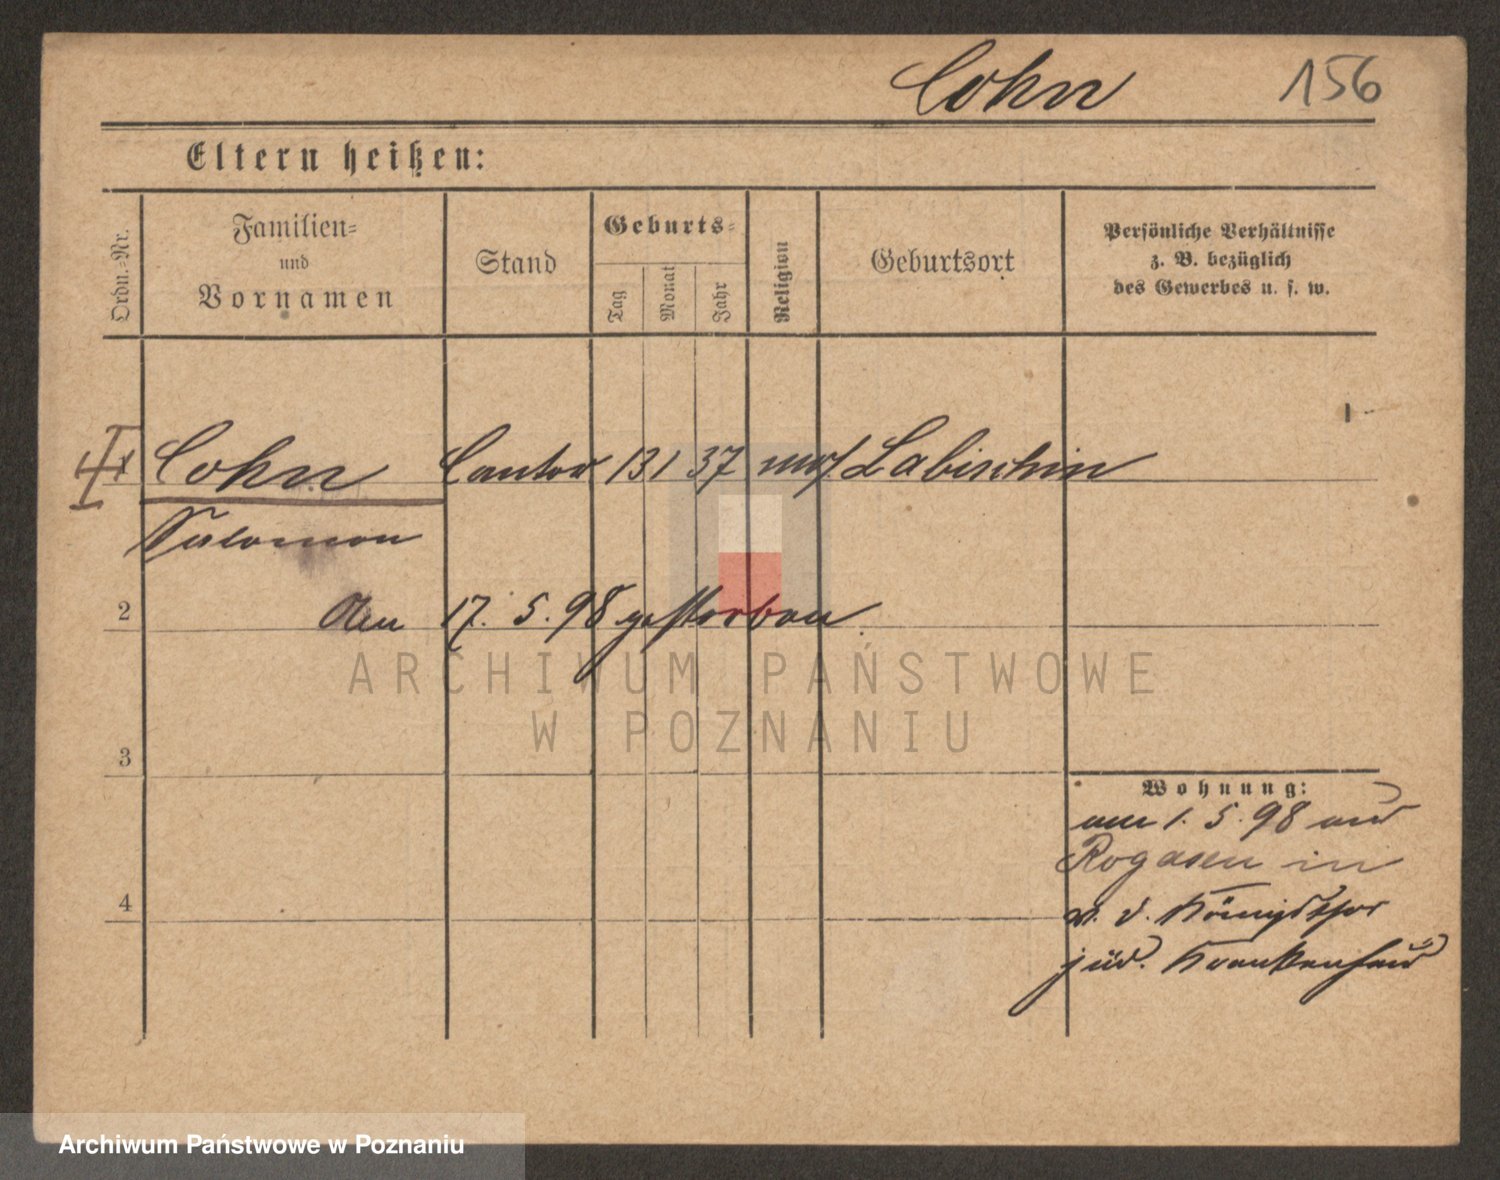 Cohn 156
Eltern heißen:
Ordn.-Nr. Familien- und Vornamen Stand Geburts- Tag Monat Jahr Religion Geburtsort Persönliche Verhältnisse z. B. bezüglich des Gewerbes u. s. w.
1 Cohn Cantor 13 1 37 mos. Labischin
Salomon
2 Am 17. 5. 98 gestorben.
ARCHIWUM PAŃSTWOWE
W POZNANIU
3
Wohnung:
am 1. 5. 98 aus
Rogasen in
4 v. d. Königsthor
jüd. Krankenhaus
Archiwum Państwowe w Poznaniu